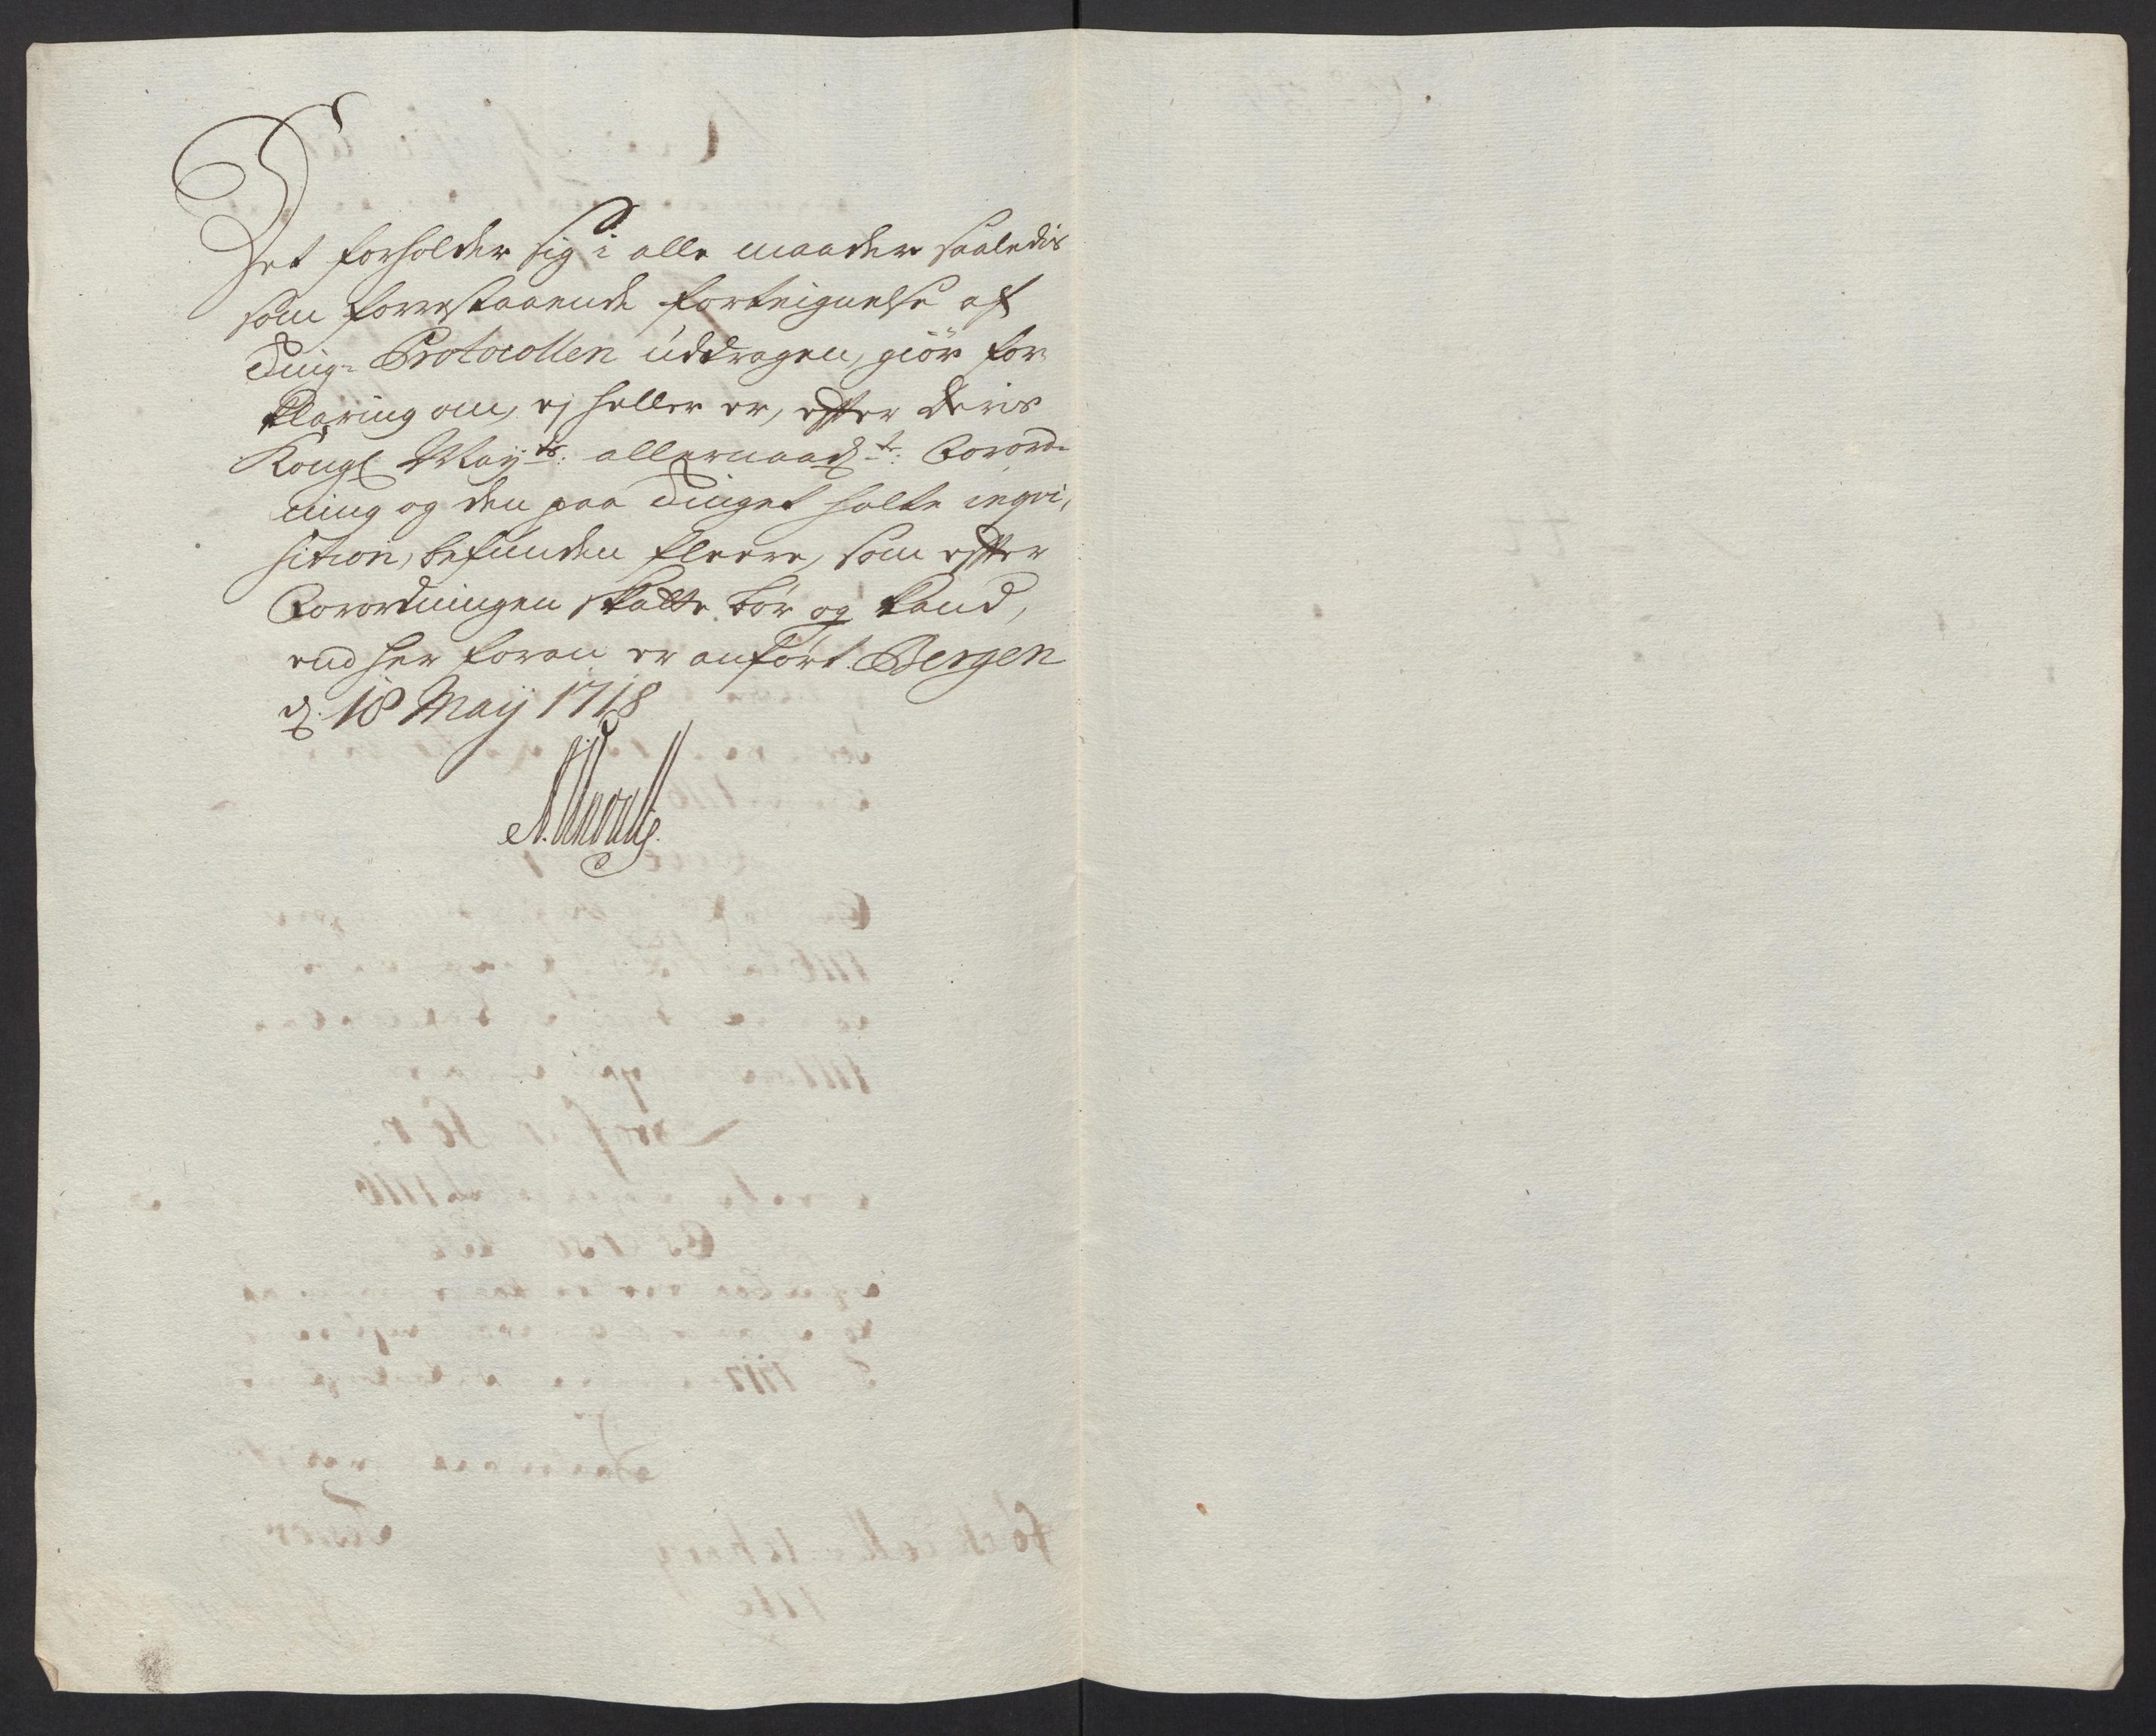 Det forholder sig i alle maader saaledis
som forrestaaende forteignelse af
Ting- Protocollen uddragen, giör for
klaring om, ej heller er, effter Deris
Kongl Mayts: allernaadste: Forord-
ning og den paa Tinget holte inqvi,
sition, befunden fleere, som effter
Forordningen skatte bör og kand,
end her foran er anført. Bergen
d. 18 Maij 1718